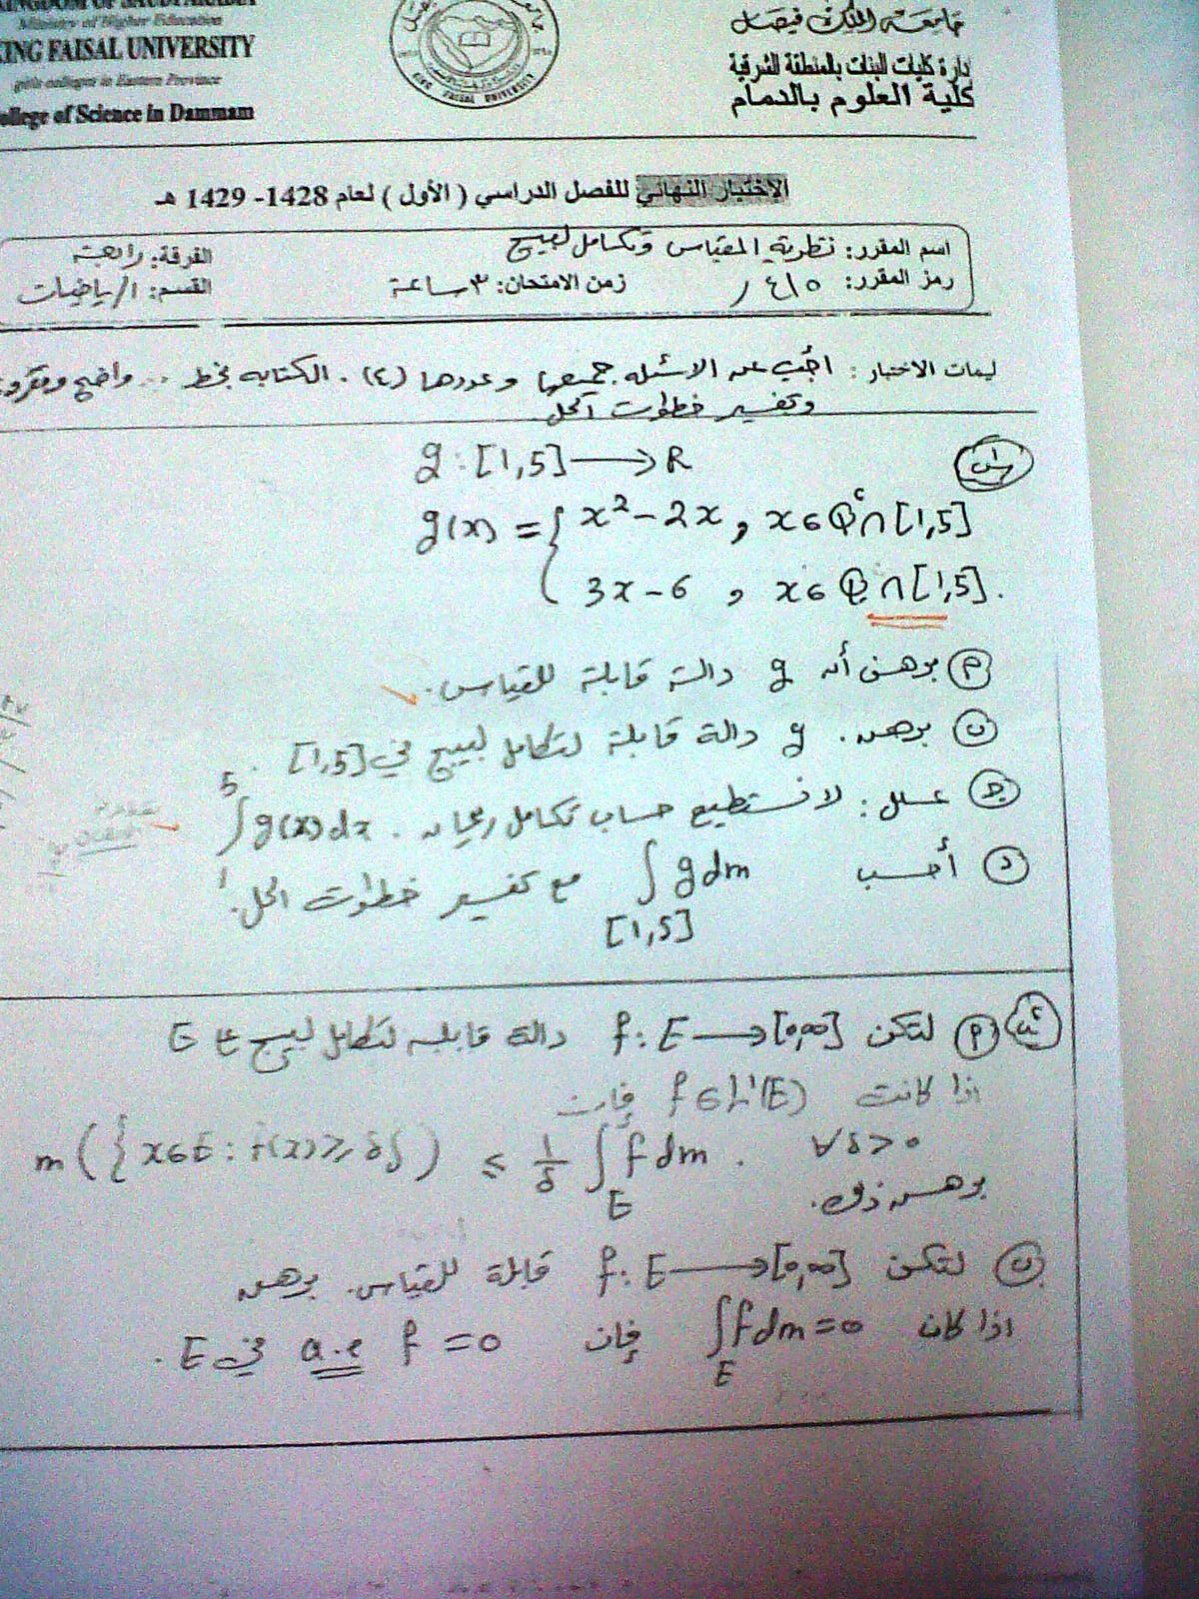 KINGDOM OF SAUDI ARABIA
Ministry of Higher Education
KING FAISAL UNIVERSITY
girls colleges in Eastern Province
College of Science in Dammam
KING FAISAL UNIVERSITY
جامعة الملك فيصل
إدارة كليات البنات بالمنطقة الشرقية
كلية العلوم بالدمام
الإختبار النهائي للفصل الدراسي ( الأول ) لعام 1428- 1429 هـ
اسم المقرر: نظرية المقياس وتكامل لبيج الفرقة: رابعة
رمز المقرر: ٤١٥ ر زمن الامتحان: ٣ ساعة القسم: الرياضيات
ليمات الاختبار : أجب عن الاسئله جميعها وعددها (٤) . الكتابه بخط ... واضح ومقروء
وتفسير خطوات الحل
س١
g : [1,5] ⟶ R
g(x) = { x² - 2x , x ∈ Qᶜ ∩ [1,5]
3x - 6 , x ∈ Q ∩ [1,5] .
(أ) برهن أن g دالة قابلة للقياس .
(ب) برهن . g دالة قابلة لتكامل لبيج في [1,5] .
(ج) علل : لا نستطيع حساب تكامل ريمان . ∫₁⁵ g(x) dx
(د) أحسب ∫ g dm مع تفسير خطوات الحل .
[1,5]
س٢ (أ) لتكن f : E ⟶ [0,∞] دالة قابلة لتكامل لبيج على E
اذا كانت f ∈ L¹(E) فإن
m ( { x ∈ E : f(x) ≥ δ } ) ≤ 1/δ ∫_E f dm . ∀ δ > 0
برهن ذلك .
(ب) لتكن f : E ⟶ [0,∞] قابلة للقياس . برهن
اذا كان ∫_E f dm = 0 فإن f = 0 a.e في E .